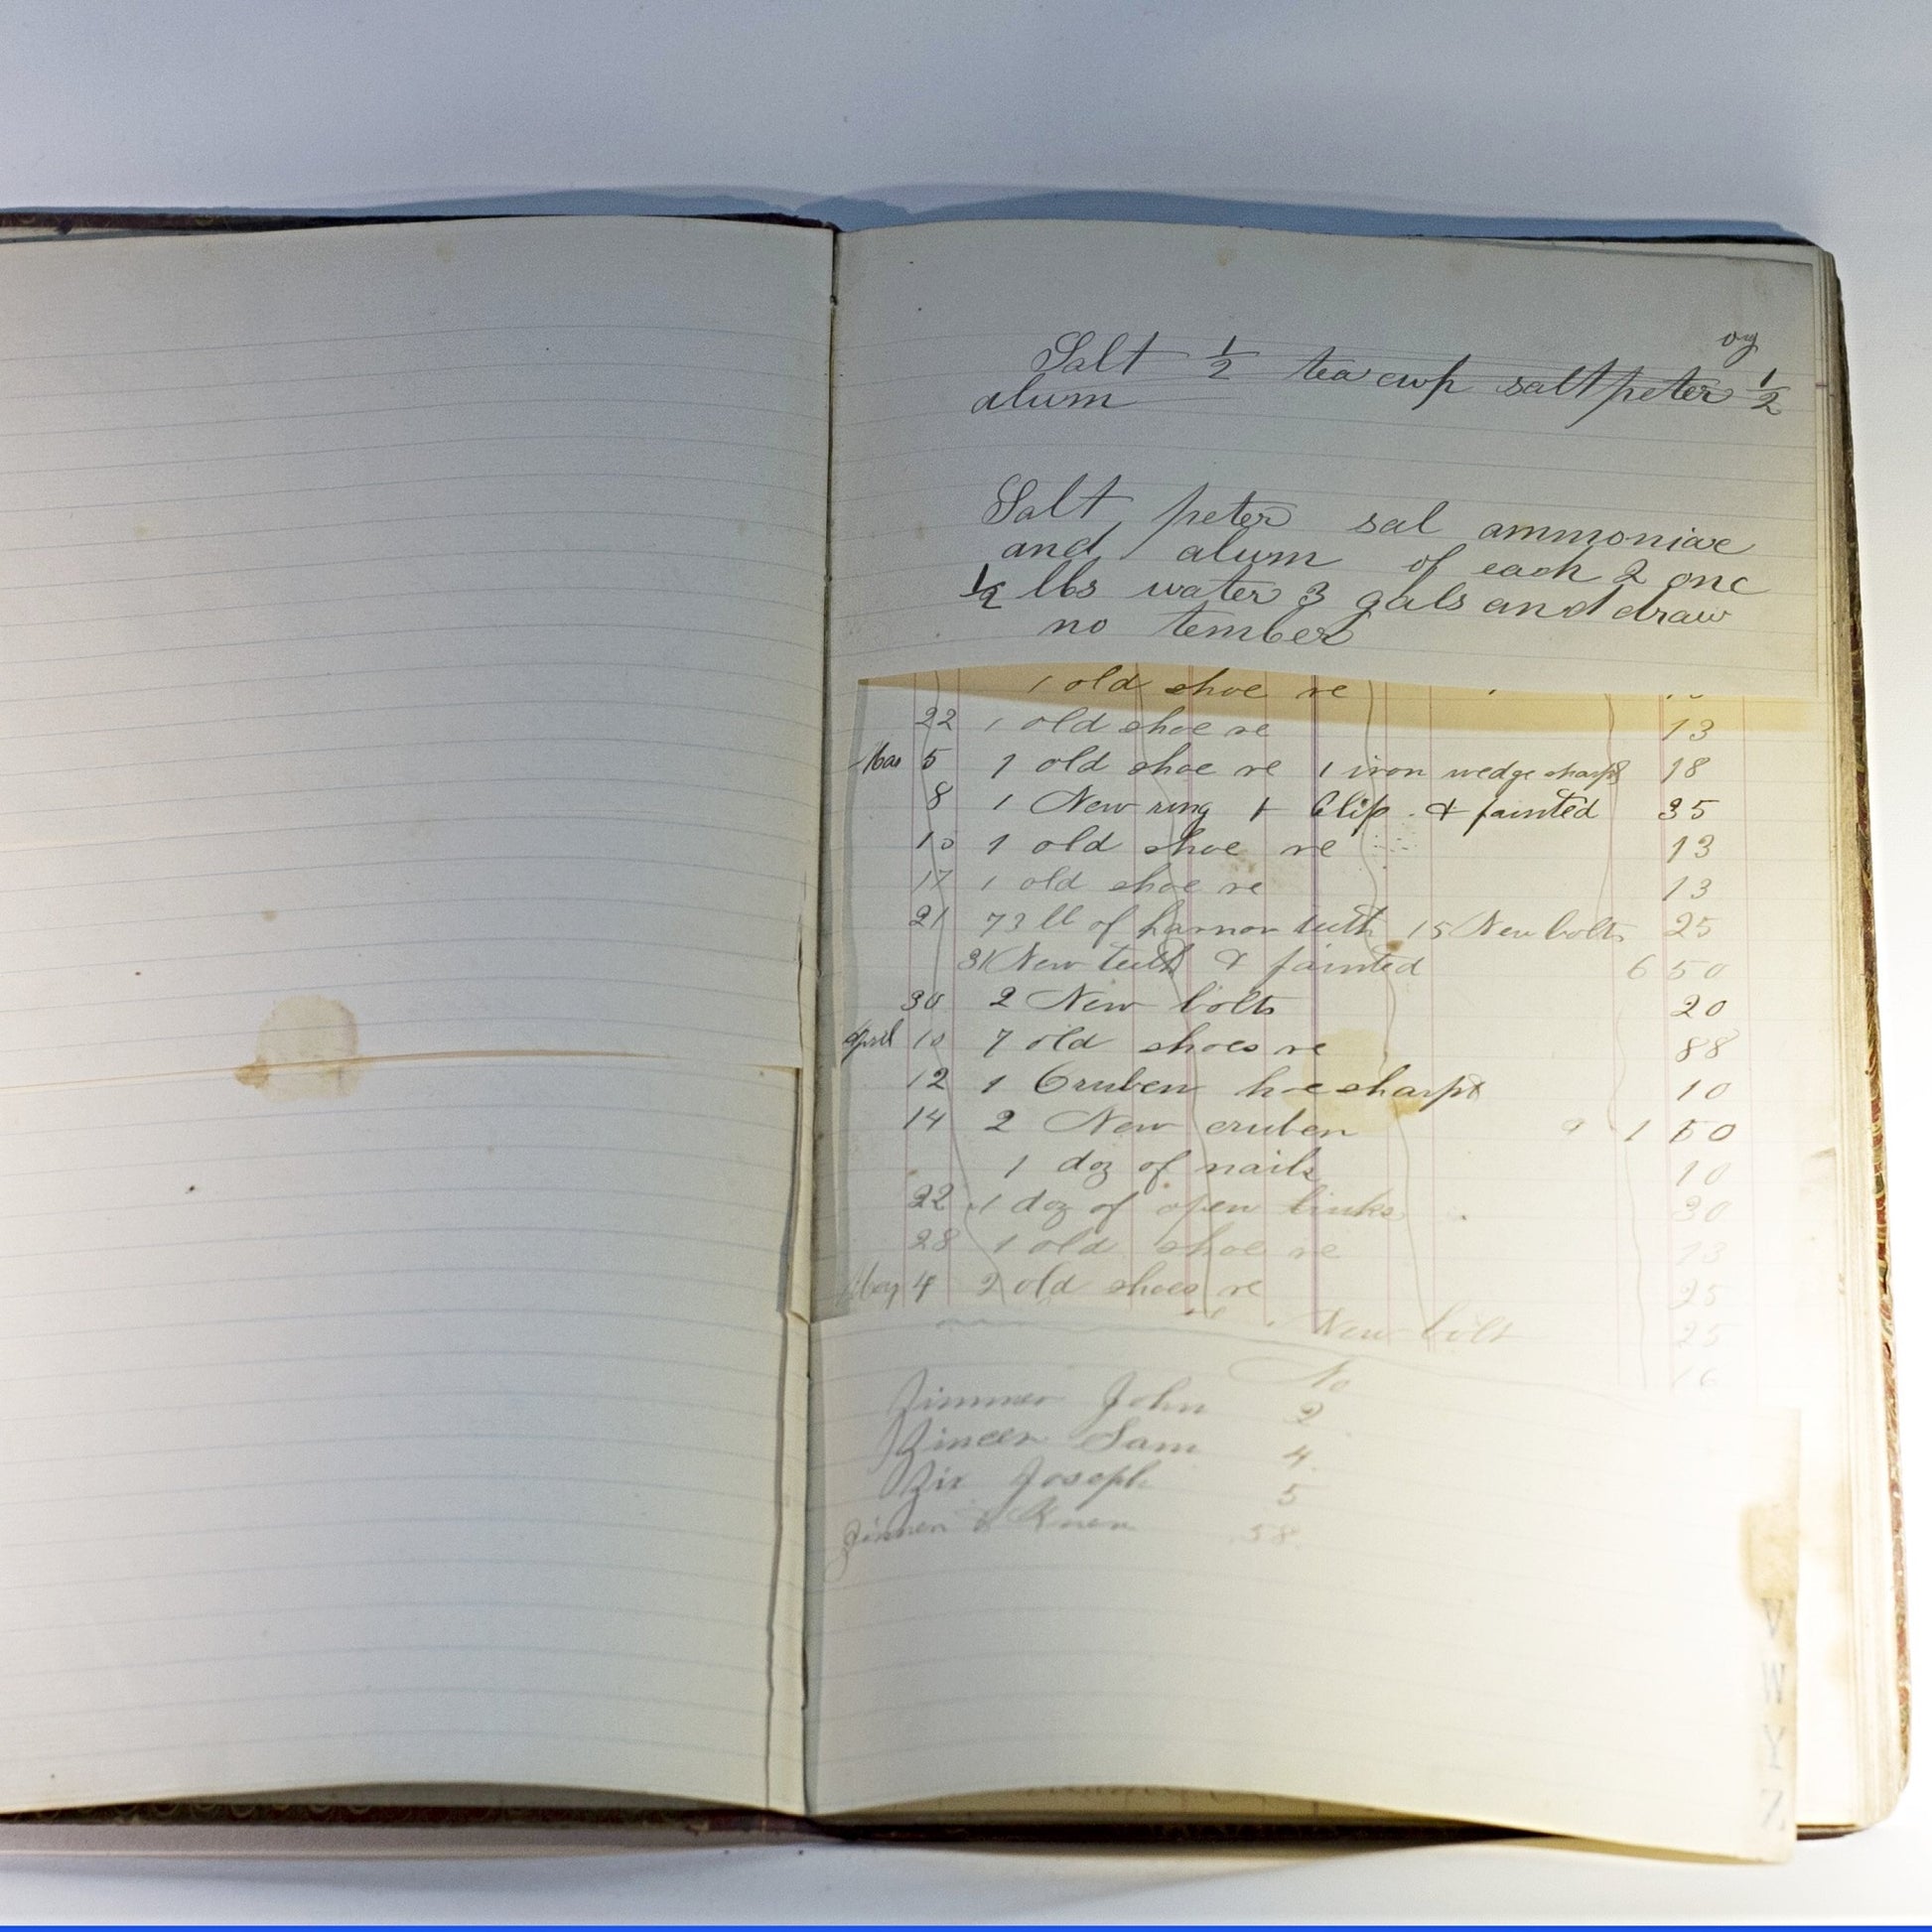 oz
Salt ½ tea cup saltpeter ½
alum
Salt peter sal ammoniac
and alum of each 2 one
½ lbs water 3 gals and draw
no tember
1 old shoe re
22 1 old shoe re 13
Mar 5 1 old shoe re 1 iron wedge sharp 18
8 1 New ring & Clip & painted 35
10 1 old shoe re 13
17 1 old shoe re 13
21 73 lb of harrow teeth 15 New bolts 25
31 New teeth & painted 6 50
30 2 New bolts 20
April 10 7 old shoes re 88
12 1 Gruben hoe sharp 10
14 2 New gruben 1 50
1 doz of nails 10
22 1 doz of open links 30
28 1 old shoe re 13
May 4 2 old shoes re 25
re New bolt 25
16
No
Zimmer John 2
Sam 4
Zix Joseph 5
Zimmer & 58
V
W
Y
Z